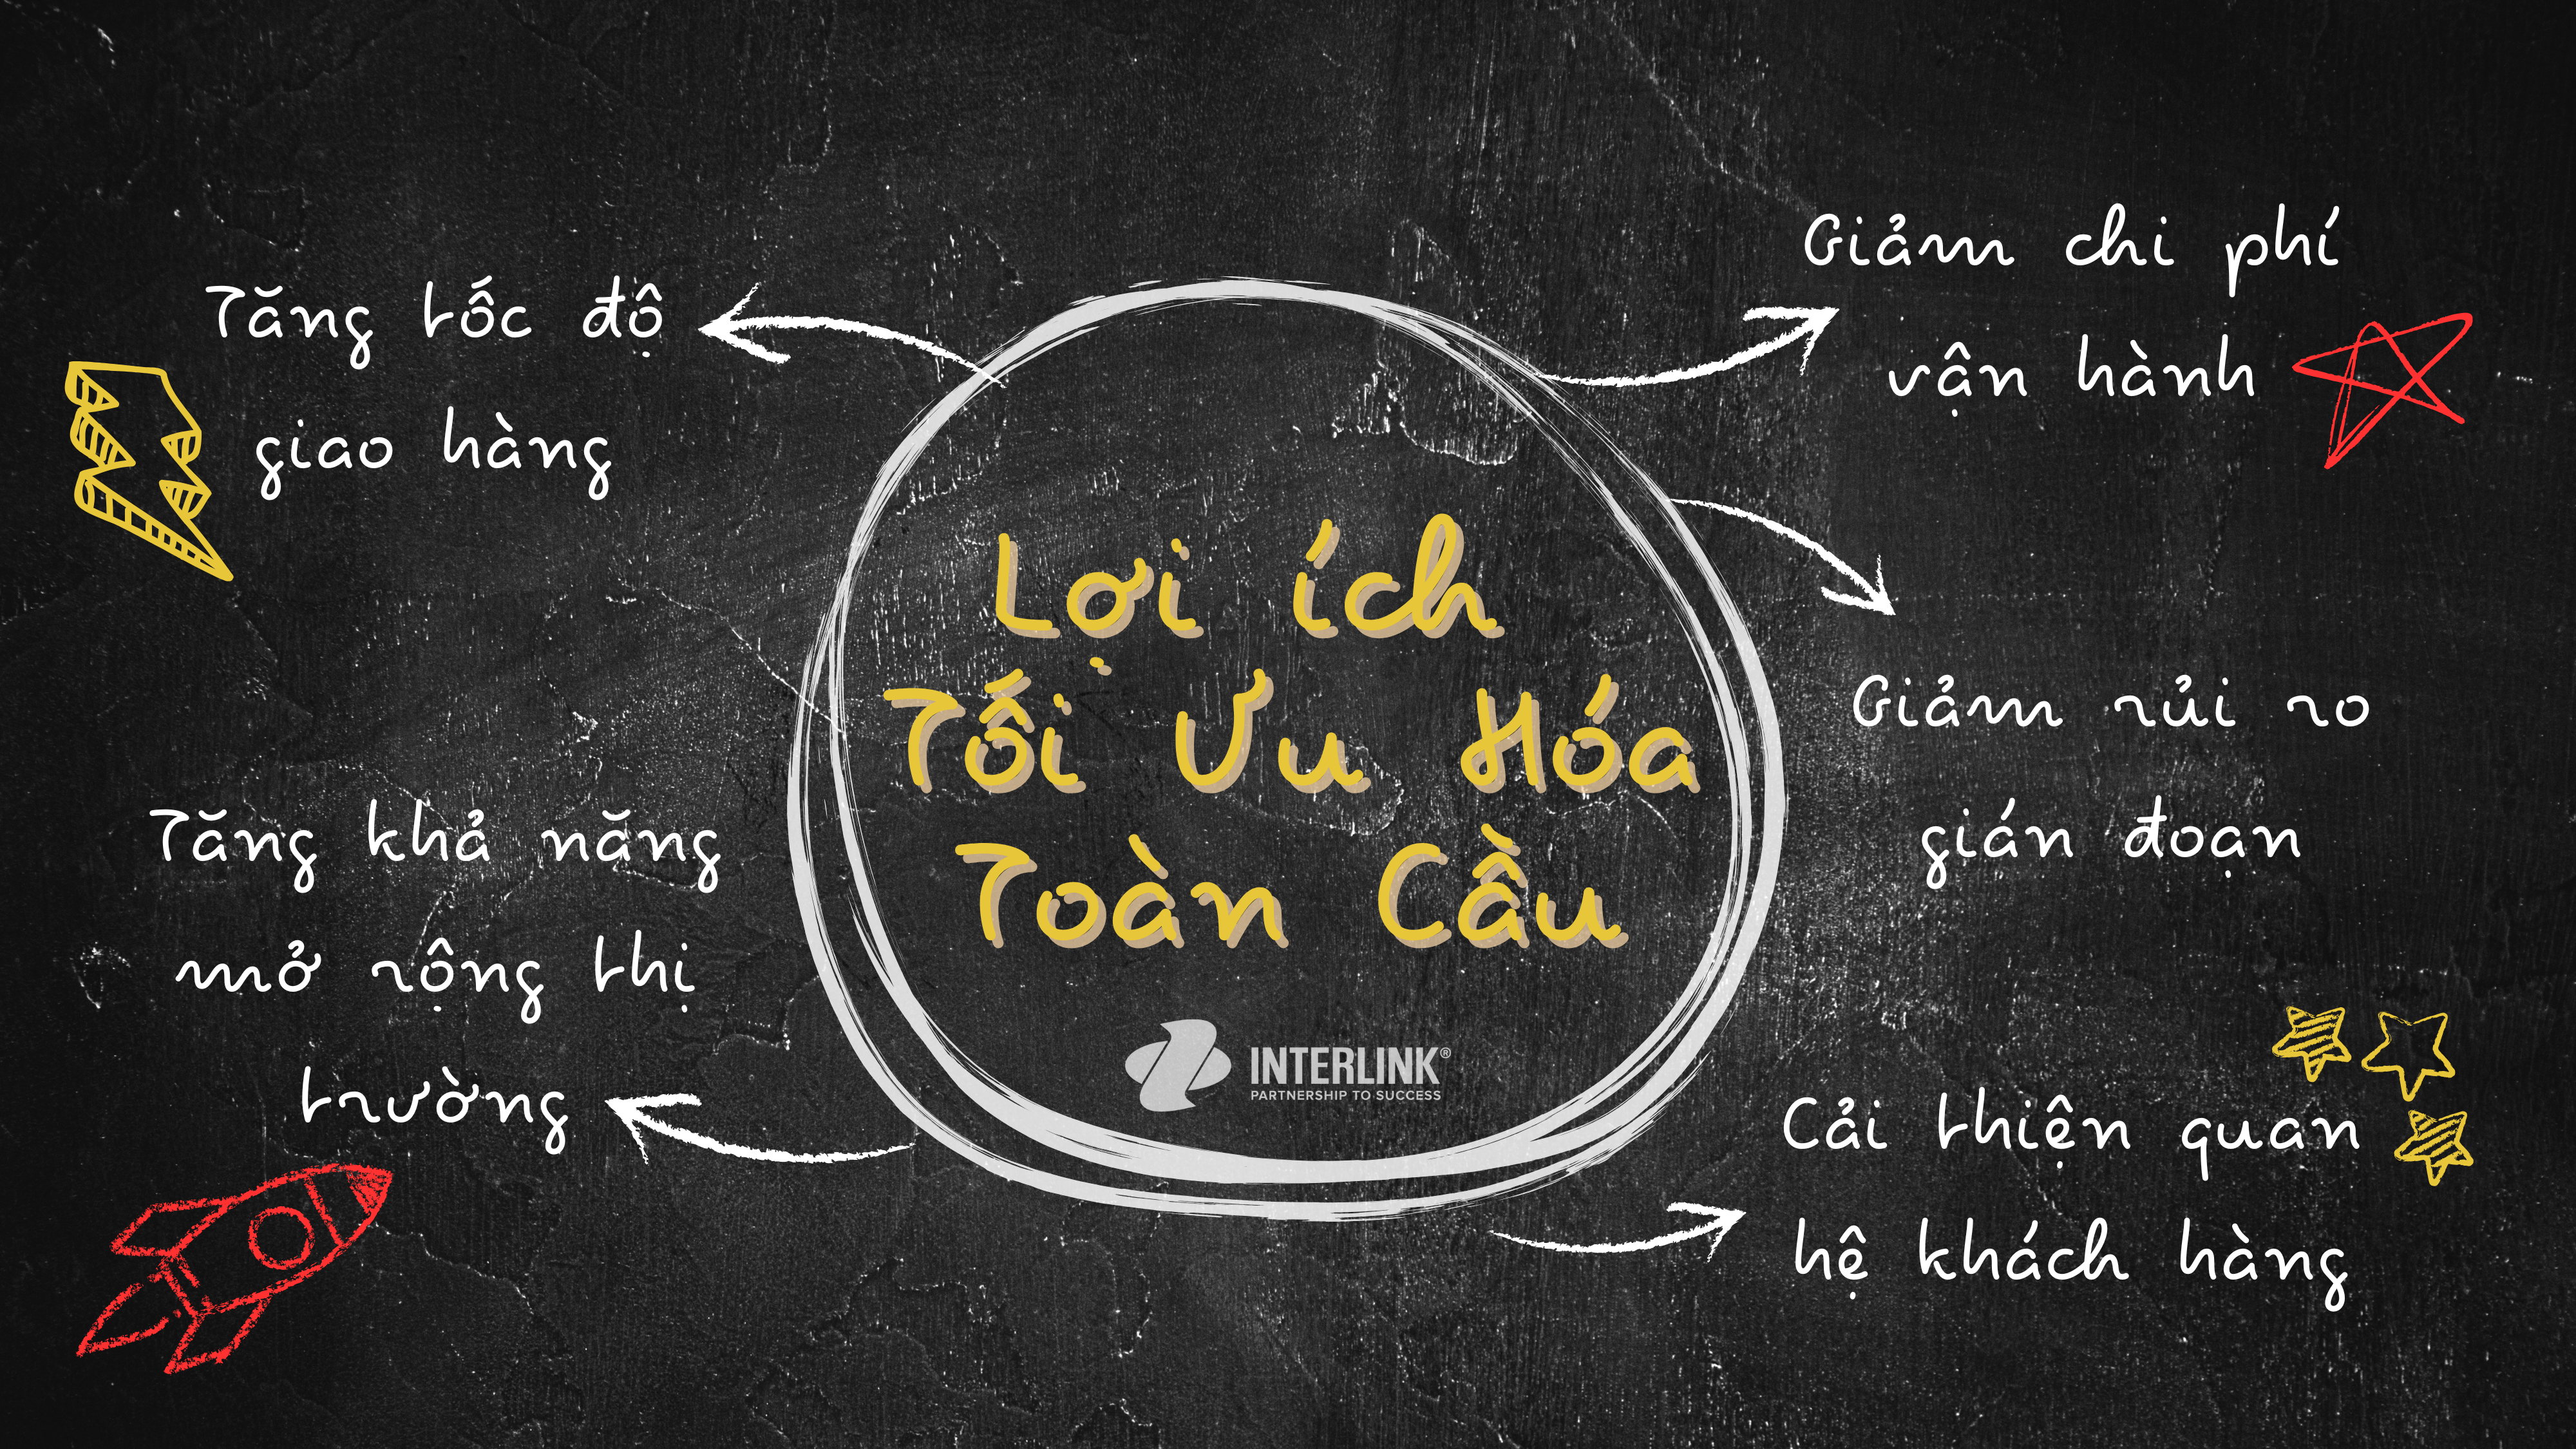 Tăng tốc độ
giao hàng
Giảm chi phí
vận hành
Lợi ích
Tối Ưu Hóa
Toàn Cầu
INTERLINK®
PARTNERSHIP TO SUCCESS
Giảm rủi ro
gián đoạn
Tăng khả năng
mở rộng thị
trường
Cải thiện quan
hệ khách hàng